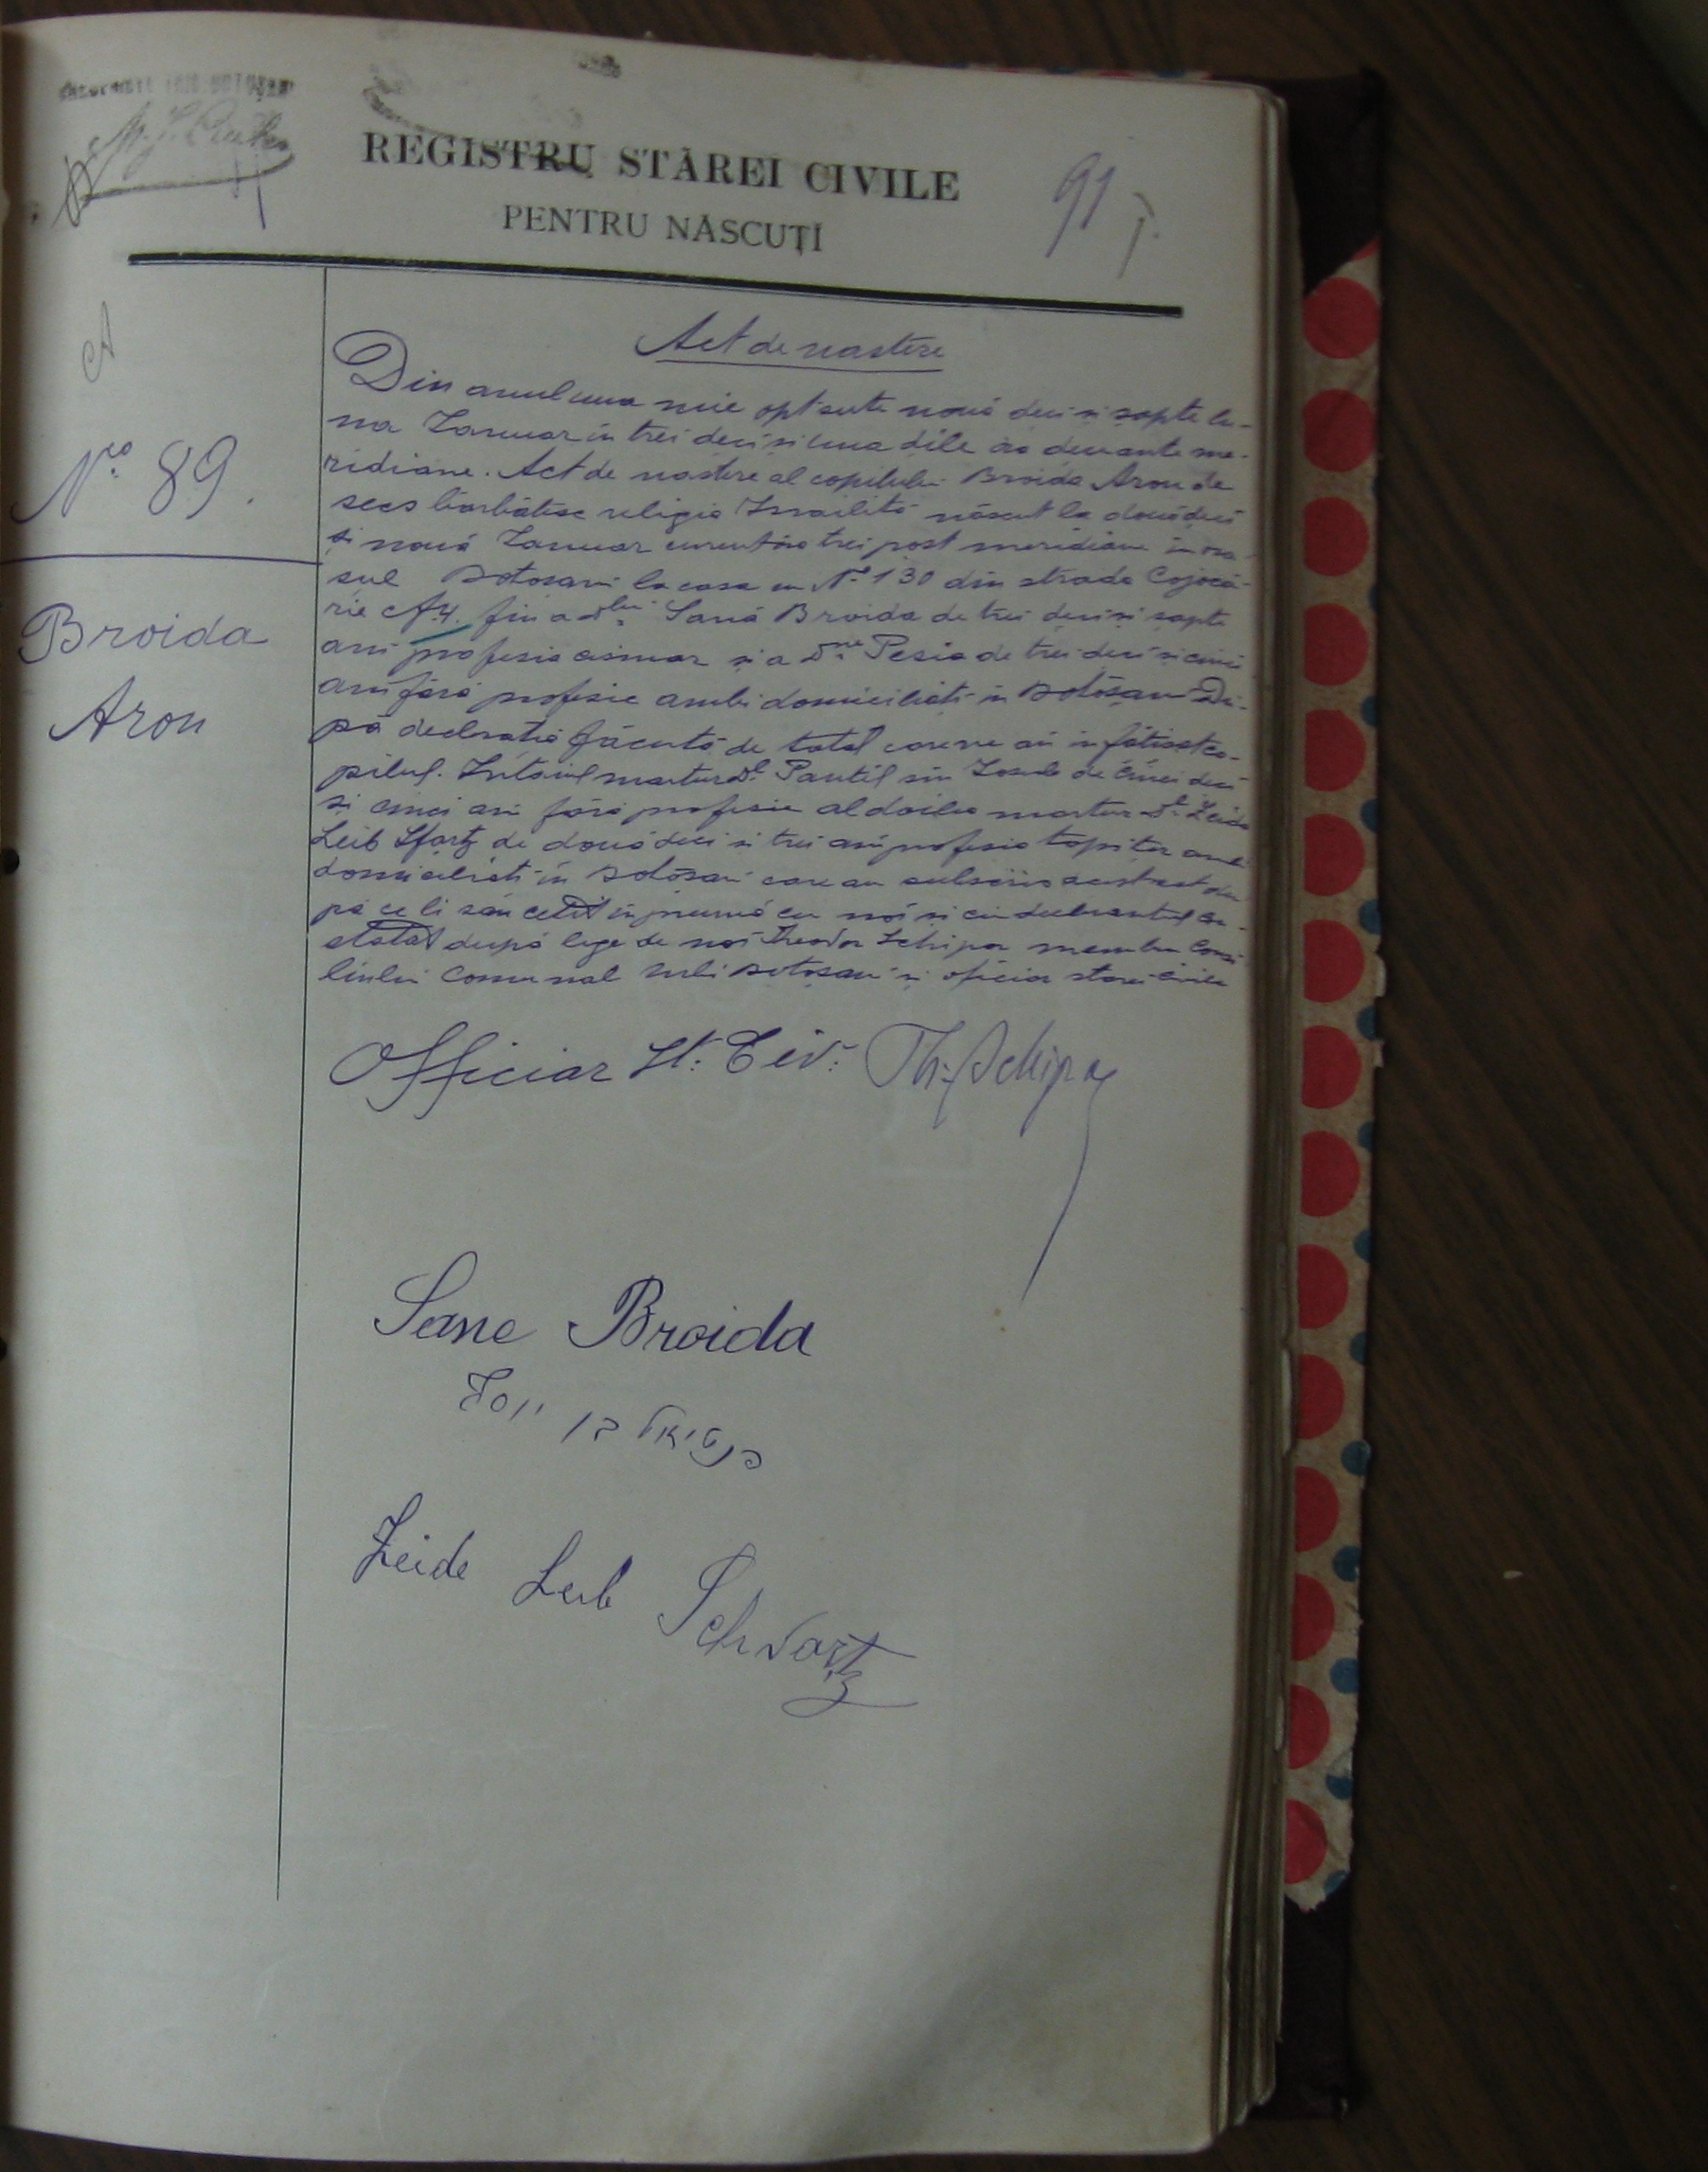 REGISTRU STĂREI CIVILE
PENTRU NĂSCUȚI
91
A
No 89.
Broida
Aron
Act de nastere
Din anul una mie opt sute nouă deci și șapte lu-
na Ianuar în trei deci si una dile ora dece ante me-
ridiane. Act de nastere al copilului Broida Aron de
secs bărbătesc religia Israilită născut la douădeci
și nouă Ianuar curent ora trei post meridiane în ora-
șul Botosani la casa cu No 130 din strada Cojocă-
rie fiu a Dlui Sană Broida de trei deci și șapte
ani profesia și a Dnei Pesia de trei deci și cinci
ani fără profesie ambii domiciliati in Botoșani Du-
pă declaratia făcută de tatal care ne au înfătisat co-
pilul. Intaiul martur Dl Pantil sin Iosub de cinci deci
si cinci ani fără profesie al doilea martur Dl Zeida
Leib Sfartz de două deci si trei ani profesia tapiter ambi
domiciliati in Botosani care au subscris acest act du-
pă ce li sau cetit inpreună cu noi si cu declarantul con-
statat după lege de noi Theodor Schipor membru Consi
liului Comunal Urbi Botosani și oficiar starei civile
Officiar St. Civ. Th. Schipor
Sane Broida
Zeide Leib Schvartz